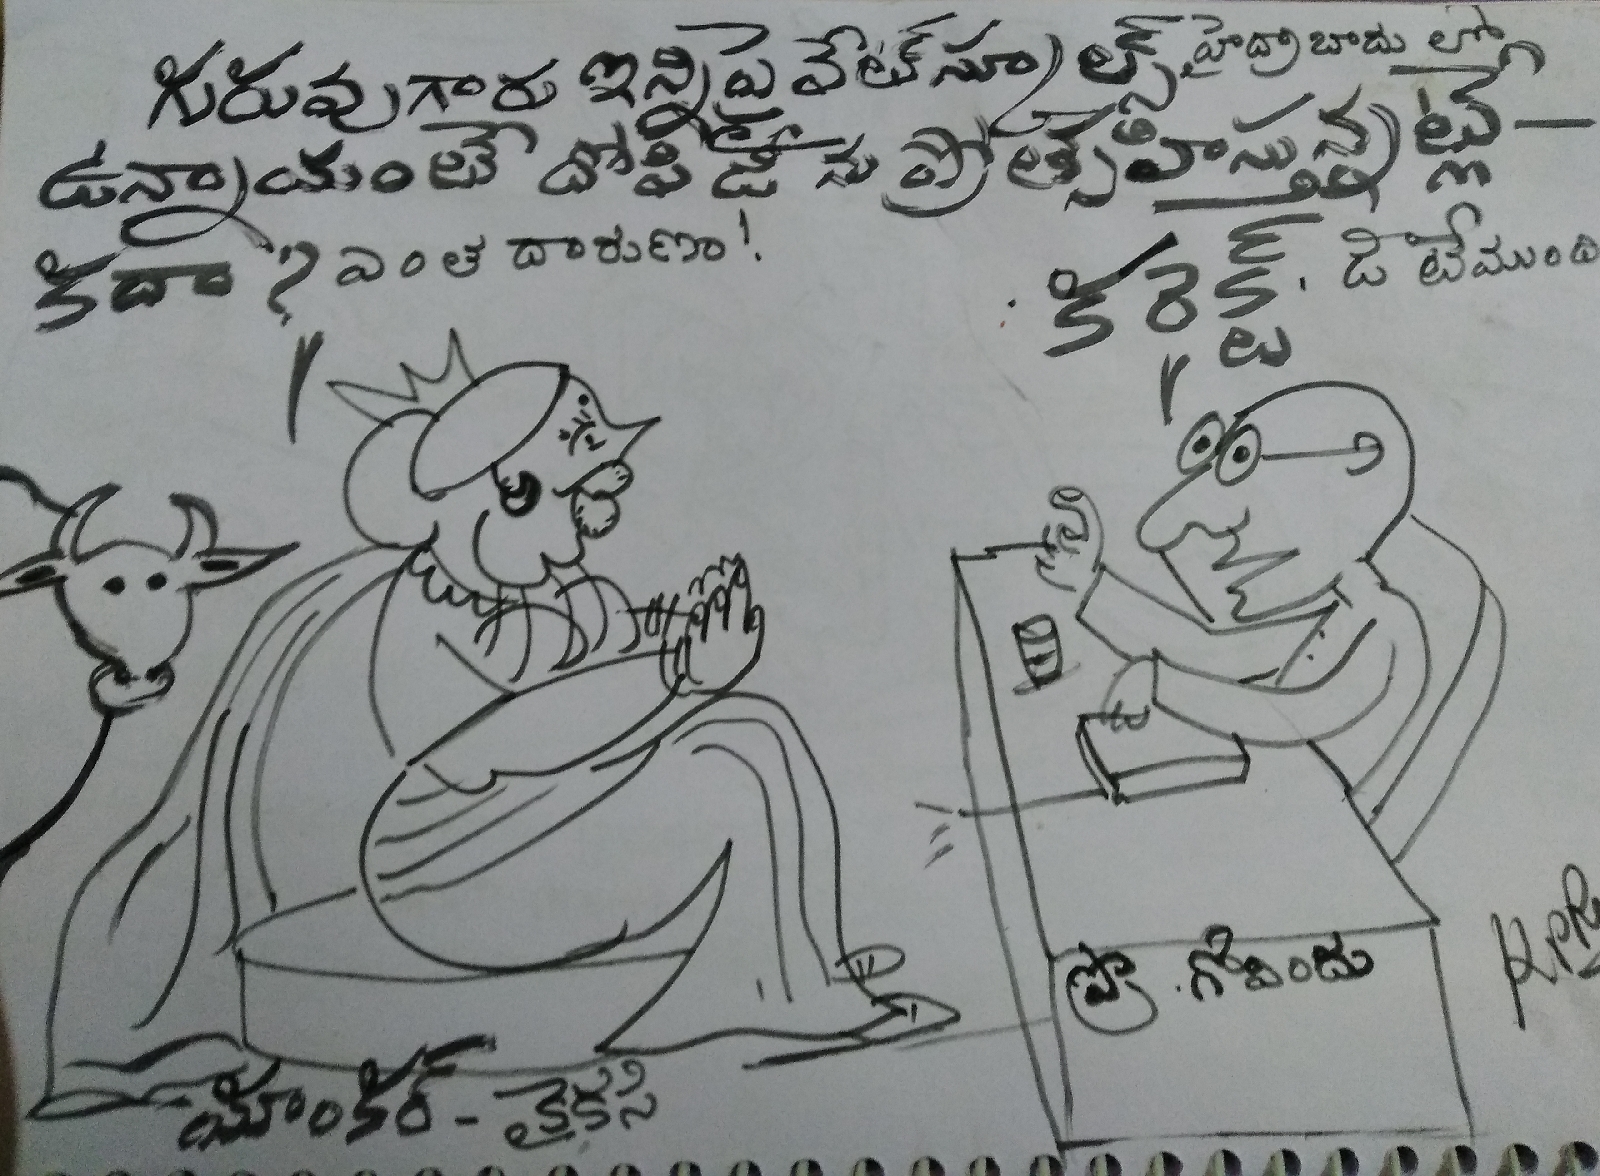 గురువుగారు ఇన్ని ప్రైవేట్ స్కూల్స్ హైద్రాబాదు లో
ఉన్నాయంటే దోపిడీ ను ప్రోత్సహిస్తున్నట్లే
కదా? ఎంత దారుణం!
కరెక్ట్. డౌటేముంది
ప్రొ. గోవిందు
యాంకర్ - కైకసి